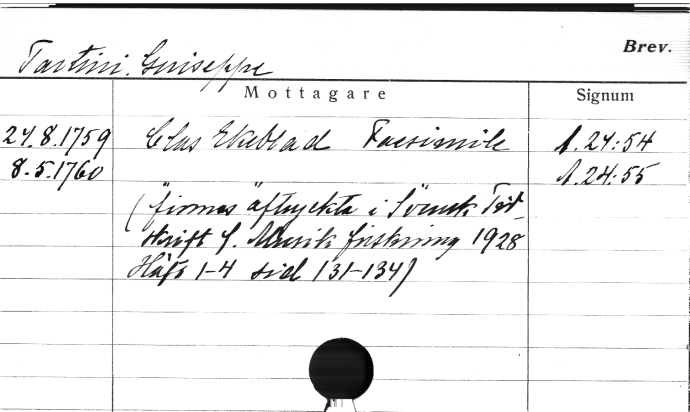 Brev.
Tartini, Guiseppe
Mottagare Signum
24.8.1759 Clas Ekeblad Facsimile A.24:54
8.5.1760 A.24:55
(finnes aftryckta i Svensk Tid
skrift f. Musik forskning 1928
Häft 1-4 sid 131-134)